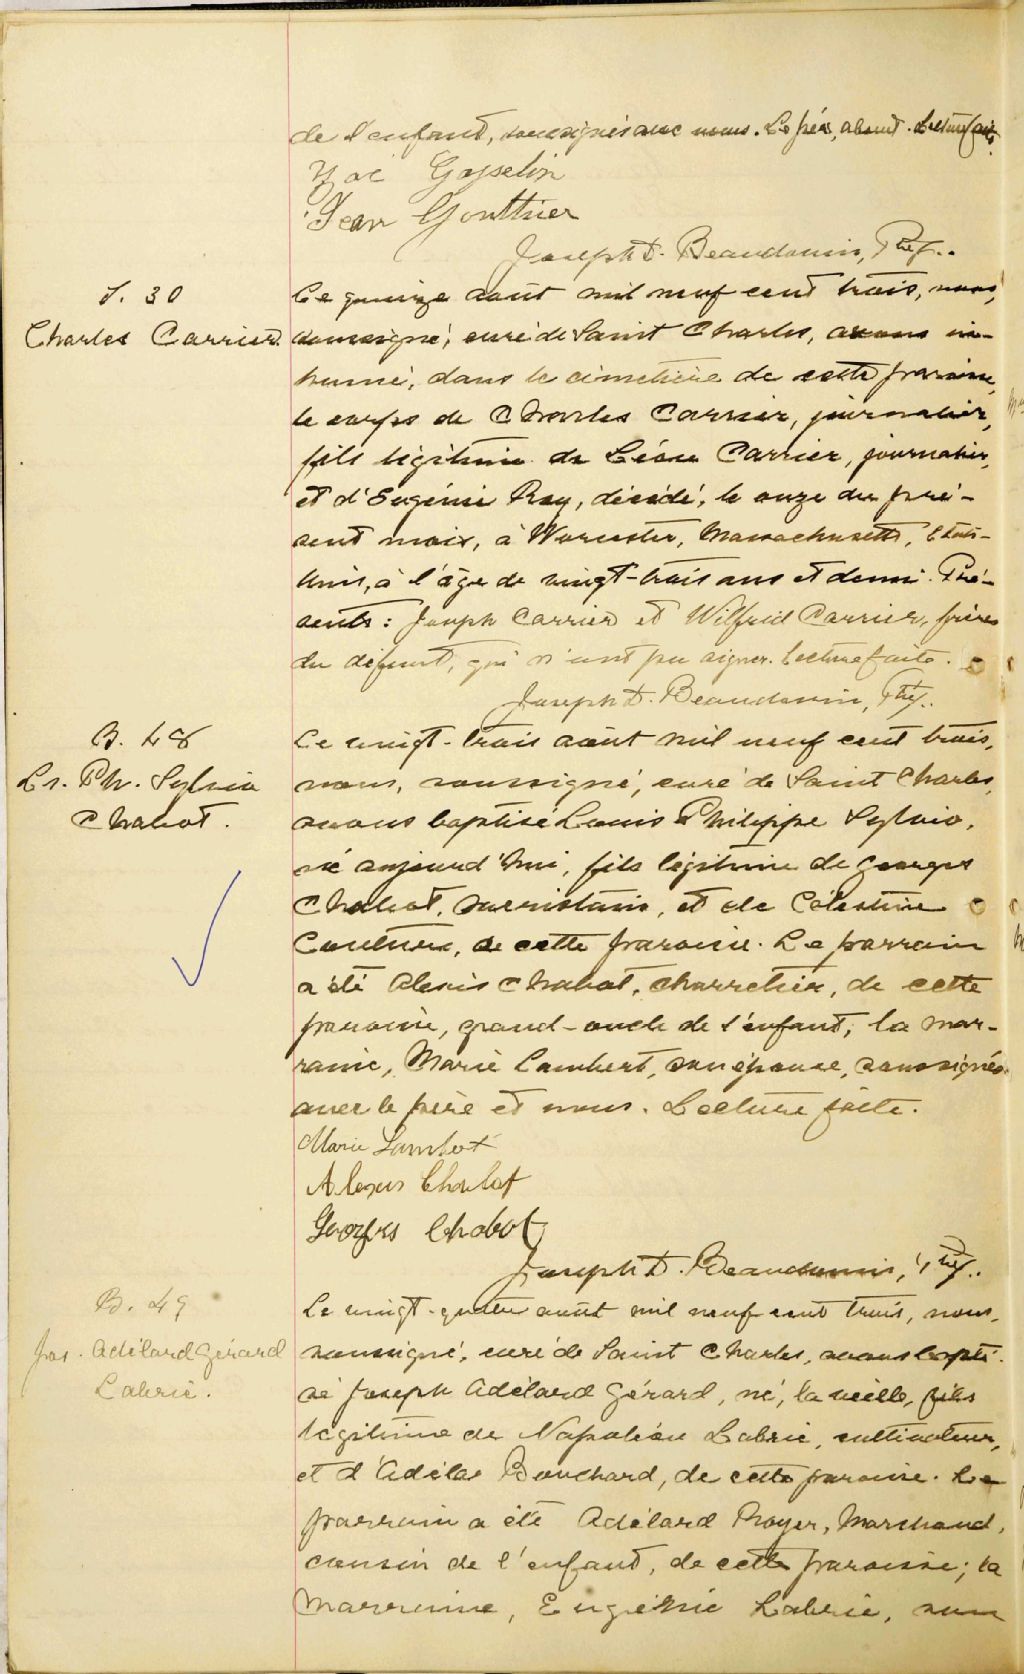 de l'enfant, soussignés avec nous. Le père, absent. Lecture faite.
Gosselin
Jean Gonthier
Joseph D. Beaudouin, Ptre.
S. 30
Charles Carrier
Le quinze août mil neuf cent trois, nous,
soussigné, curé de Saint Charles, avons in-
humé, dans le cimetière de cette paroisse,
le corps de Charles Carrier, journalier,
fils légitime de Léon Carrier, journalier,
et d'Eugénie Roy, décédé, le onze du pré-
sent mois, à Worcester, Massachusetts, Etats-
Unis, à l'âge de vingt-trois ans et demi. Pré-
sents: Joseph Carrier et Wilfrid Carrier, frères
du défunt, qui n'ont pu signer. Lecture faite.
Joseph D. Beaudouin, Ptre.
B. 48
Ls. Ph. Sylvio
Chabot.
Le vingt-trois août mil neuf cent trois,
nous, soussigné, curé de Saint Charles,
avons baptisé Louis Philippe Sylvio,
né aujourd'hui, fils légitime de Georges
Chabot, sacristain, et de Célestine
Couture, de cette paroisse. Le parrain
a été Alexis Chabot, charretier, de cette
paroisse, grand-oncle de l'enfant; la mar-
raine, Marie Lambert, son épouse, soussignés
avec le père et nous. Lecture faite.
Marie Lambert
Alexis Chabot
Georges Chabot
Joseph D. Beaudouin, Ptre.
B. 49
Jos. Adélard Gérard
Labrie.
Le vingt-quatre août mil neuf cent trois, nous,
soussigné, curé de Saint Charles, avons bapti-
sé Joseph Adélard Gérard, né, la veille, fils
légitime de Napoléon Labrie, cultivateur,
et d'Adéla Bouchard, de cette paroisse. Le
parrain a été Adélard Royer, Marchand,
cousin de l'enfant, de cette paroisse; la
Marraine, Eugénie Labrie, son